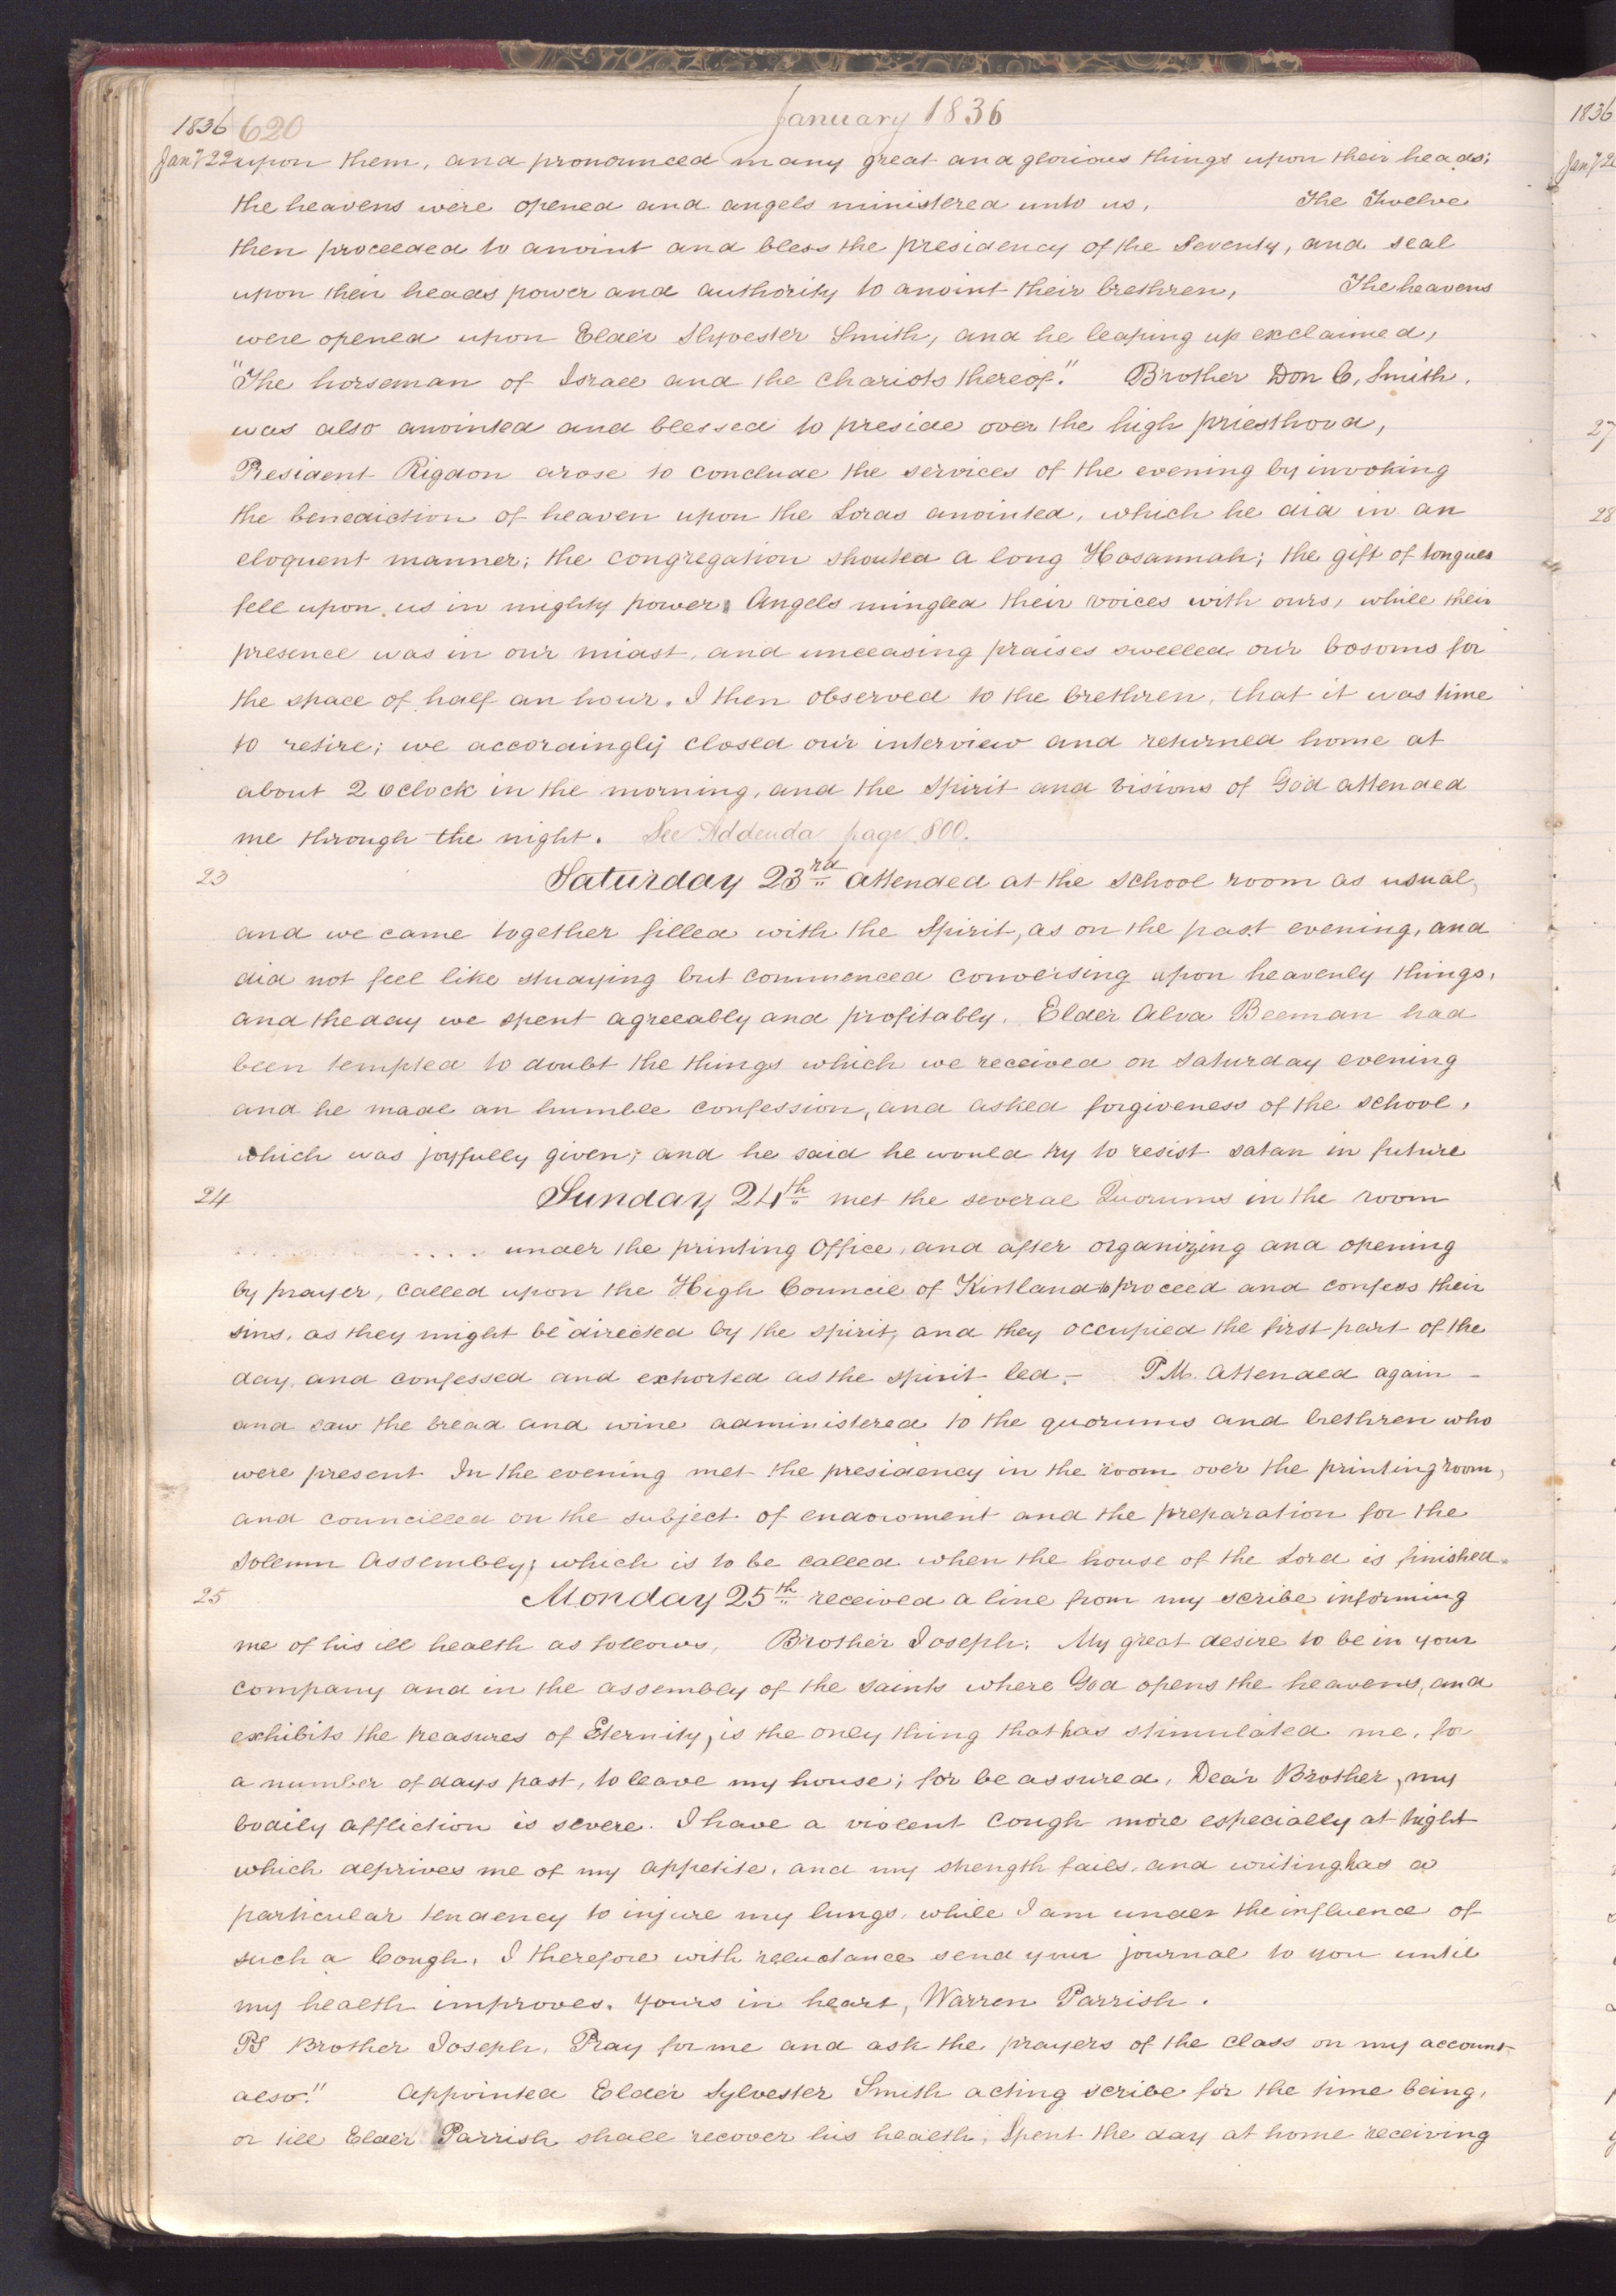 January 1836
1836 620
Jany 22 upon them, and pronounced many great and glorious things upon their heads;
the heavens were opened and angels ministered unto us, The Twelve
then proceeded to anoint and bless the presidency of the Seventy, and seal
upon their heads power and authority to anoint their brethren, The heavens
were opened upon Elder Slyvester Smith, and he leaping up exclaimed,
"The horseman of Israel and the chariots thereof." Brother Don C, Smith,
was also anointed and blessed to preside over the high priesthood,
President Rigdon arose to conclude the services of the evening by invoking
the benediction of heaven upon the Lords anointed, which he did in an
eloquent manner; the congregation shouted a long Hosannah; the gift of tongues
fell upon us in mighty power, Angels mingled their voices with ours, while their
presence was in our midst, and unceasing praises swelled our bosoms for
the space of half an hour. I then observed to the brethren, that it was time
to retire; we accordingly closed our interview and returned home at
about 2 oclock in the morning, and the Spirit and visions of God attended
me through the night. See Addenda page 800.
23 Saturday 23rd attended at the school room as usual,
and we came together filled with the Spirit, as on the past evening, and
did not feel like studying but commenced conversing upon heavenly things,
and the day we spent agreeably and profitably. Elder Alva Beeman had
been tempted to doubt the things which we received on saturday evening
and he made an humble confession, and asked forgiveness of the school,
which was joyfully given; and he said he would try to resist satan in future
24 Sunday 24th met the several Quorums in the room
. . . . . . . . . . under the printing Office, and after organizing and opening
by prayer, called upon the High Council of Kirtland to proceed and confess their
sins, as they might be directed by the spirit, and they occupied the first part of the
day, and confessed and exhorted as the spirit led.- P.M. attended again -
and saw the bread and wine administered to the quorums and brethren who
were present In the evening met the presidency in the room over the printing room,
and councilled on the subject of endowment and the preparation for the
Solemn Assembly; which is to be called when the house of the Lord is finished.
25 Monday 25th received a line from my scribe informing
me of his ill health as follows, Brother Joseph; My great desire to be in your
company and in the assembly of the saints where God opens the heavens, and
exhibits the treasures of Eternity, is the only thing that has stimulated me, for
a number of days past, to leave my house; for be assured, Dear Brother, my
bodily affliction is severe. I have a violent cough more especially at night
which deprives me of my appetite, and my strength fails, and writing has a
particular tendency to injure my lungs, while I am under the influence of
such a Cough, I therefore with reluctance send your journal to you until
my health improves. yours in heart, Warren Parrish.
PS Brother Joseph, Pray for me and ask the prayers of the class on my account
also." appointed Elder Sylvester Smith acting scribe for the time being,
or till Elder Parrish shall recover his health; Spent the day at home receiving
1836
Jany 2
27
28